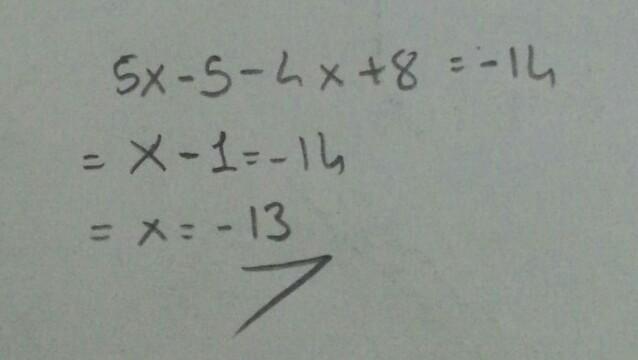 5x-5-4x+8 = -14
= x-1=-14
= x=-13